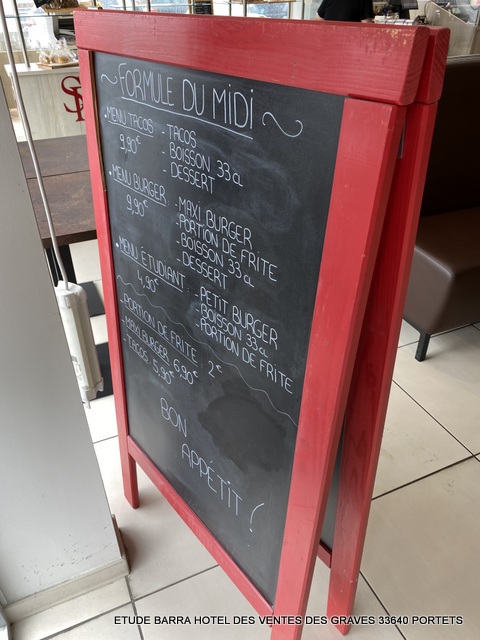 FORMULE DU MIDI
• MENU TACOS - TACOS
9,90€ - BOISSON 33 CL
- DESSERT
• MENU BURGER : - MAXI BURGER
9,90€ - PORTION DE FRITE
- BOISSON 33 CL
- DESSERT
• MENU ÉTUDIANT : - PETIT BURGER
4,90€ - BOISSON 33 CL
- PORTION DE FRITE
- PORTION DE FRITE : 2€
- MAXI BURGER 6,90€
- TACOS 5,90€
BON
APPÉTIT !
ETUDE BARRA HOTEL DES VENTES DES GRAVES 33640 PORTETS